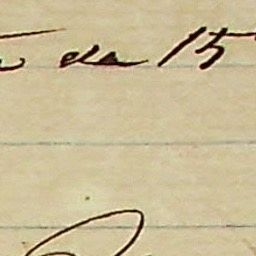 da 15